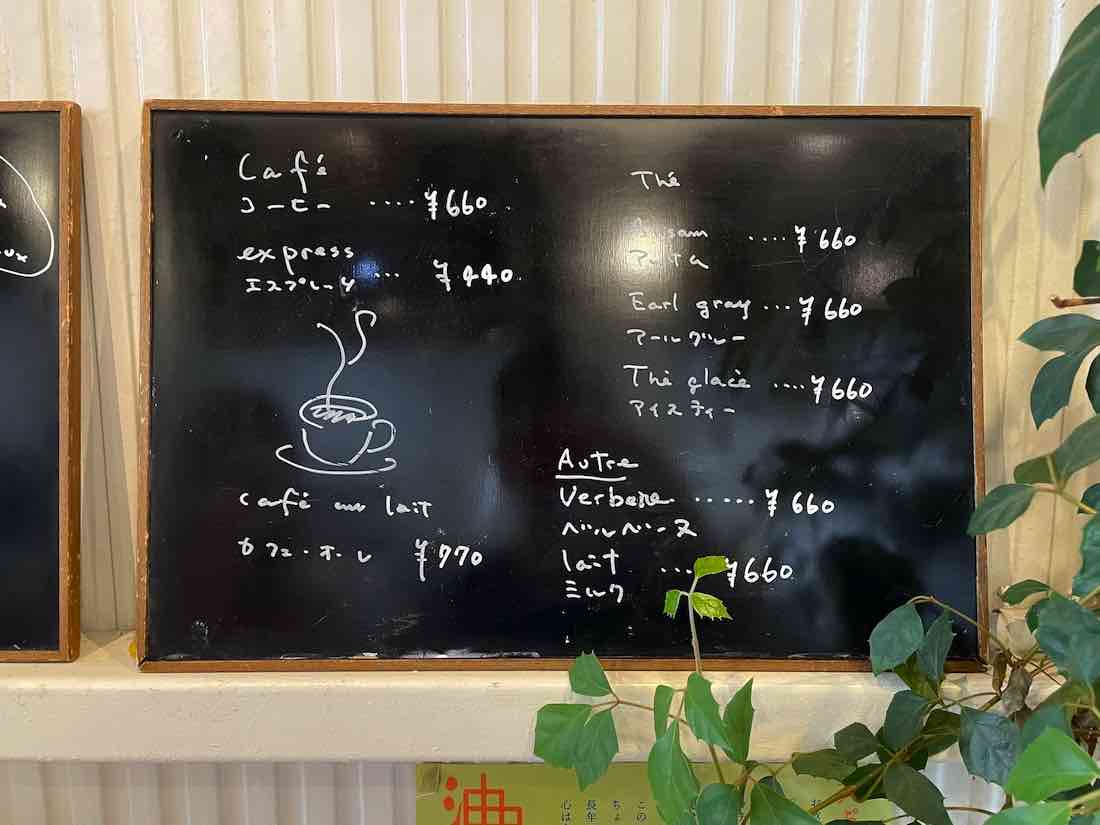 Café
コーヒー ···· ¥660.
express
エスプレーソ ... ¥440.
café au lait
カフェ・オ・レ ¥770
Thé
Assam ···· ¥660
アッサム
Earl gray ··· ¥660
アールグレー
Thé glacé ···· ¥660
アイスティー
Autre
Verbene ······ ¥660
ベルベーヌ
lait .... ¥660
ミルク
油
この
ちょ
長年
心は